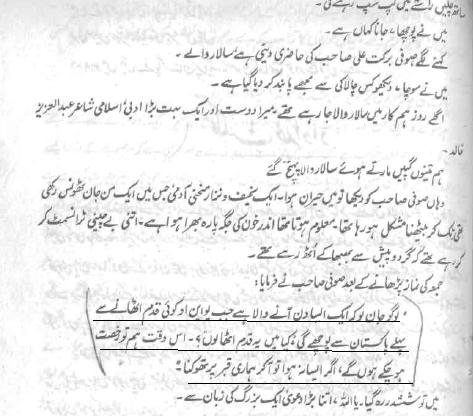 ساتھ چلیں راستے میں گپ شپ رہے گی۔
میں نے پوچھا، جانا کہاں ہے۔
کہنے لگے صوفی برکت علی صاحب کی حاضری دینی ہے سالار والے۔
میں نے سوچا، دیکھو کس چالاکی سے مجھے پابند کر دیا گیا ہے۔
اگلے روز ہم کار میں سالار والا جا رہے تھے۔ میرا دوست اور ایک بہت بڑا ادبی اسلامی شاعر عبدالعزیز
خالد۔
ہم تینوں گپیں مارتے ہوئے سالار والا پہنچ گئے
وہاں صوفی صاحب کو دیکھا تو میں حیران ہوا۔ ایک نحیف و نزار منحنی آدمی جس میں ایک سن جان ٹھونس رکھی
تھی ٹک کر بیٹھنا مشکل ہو رہا تھا۔ معلوم ہوتا تھا اندر خون کی جگہ پارہ بھرا ہوا ہے۔ اتنی بے چینی ٹرانسمٹ کر
کر رہے تھے کہ گرد و پیش سے بھبھاکے اٹھ رہے تھے۔
جمعہ کی نماز پڑھانے کے بعد صوفی صاحب نے فرمایا:
لوگو جان لو کہ ایک ایسا دن آنے والا ہے جب یو این او کوئی قدم اٹھانے سے
پہلے پاکستان سے پوچھے گی، کیا میں یہ قدم اٹھا لوں؟۔ اس وقت ہم تو رخصت
ہو چکے ہوں گے، اگر ایسا نہ ہوا تو آ کر ہماری قبر پر تھوکنا"
میں ششدر رہ گیا۔ یا اللہ، اتنا بڑا دعویٰ ایک بزرگ کی زبان سے۔